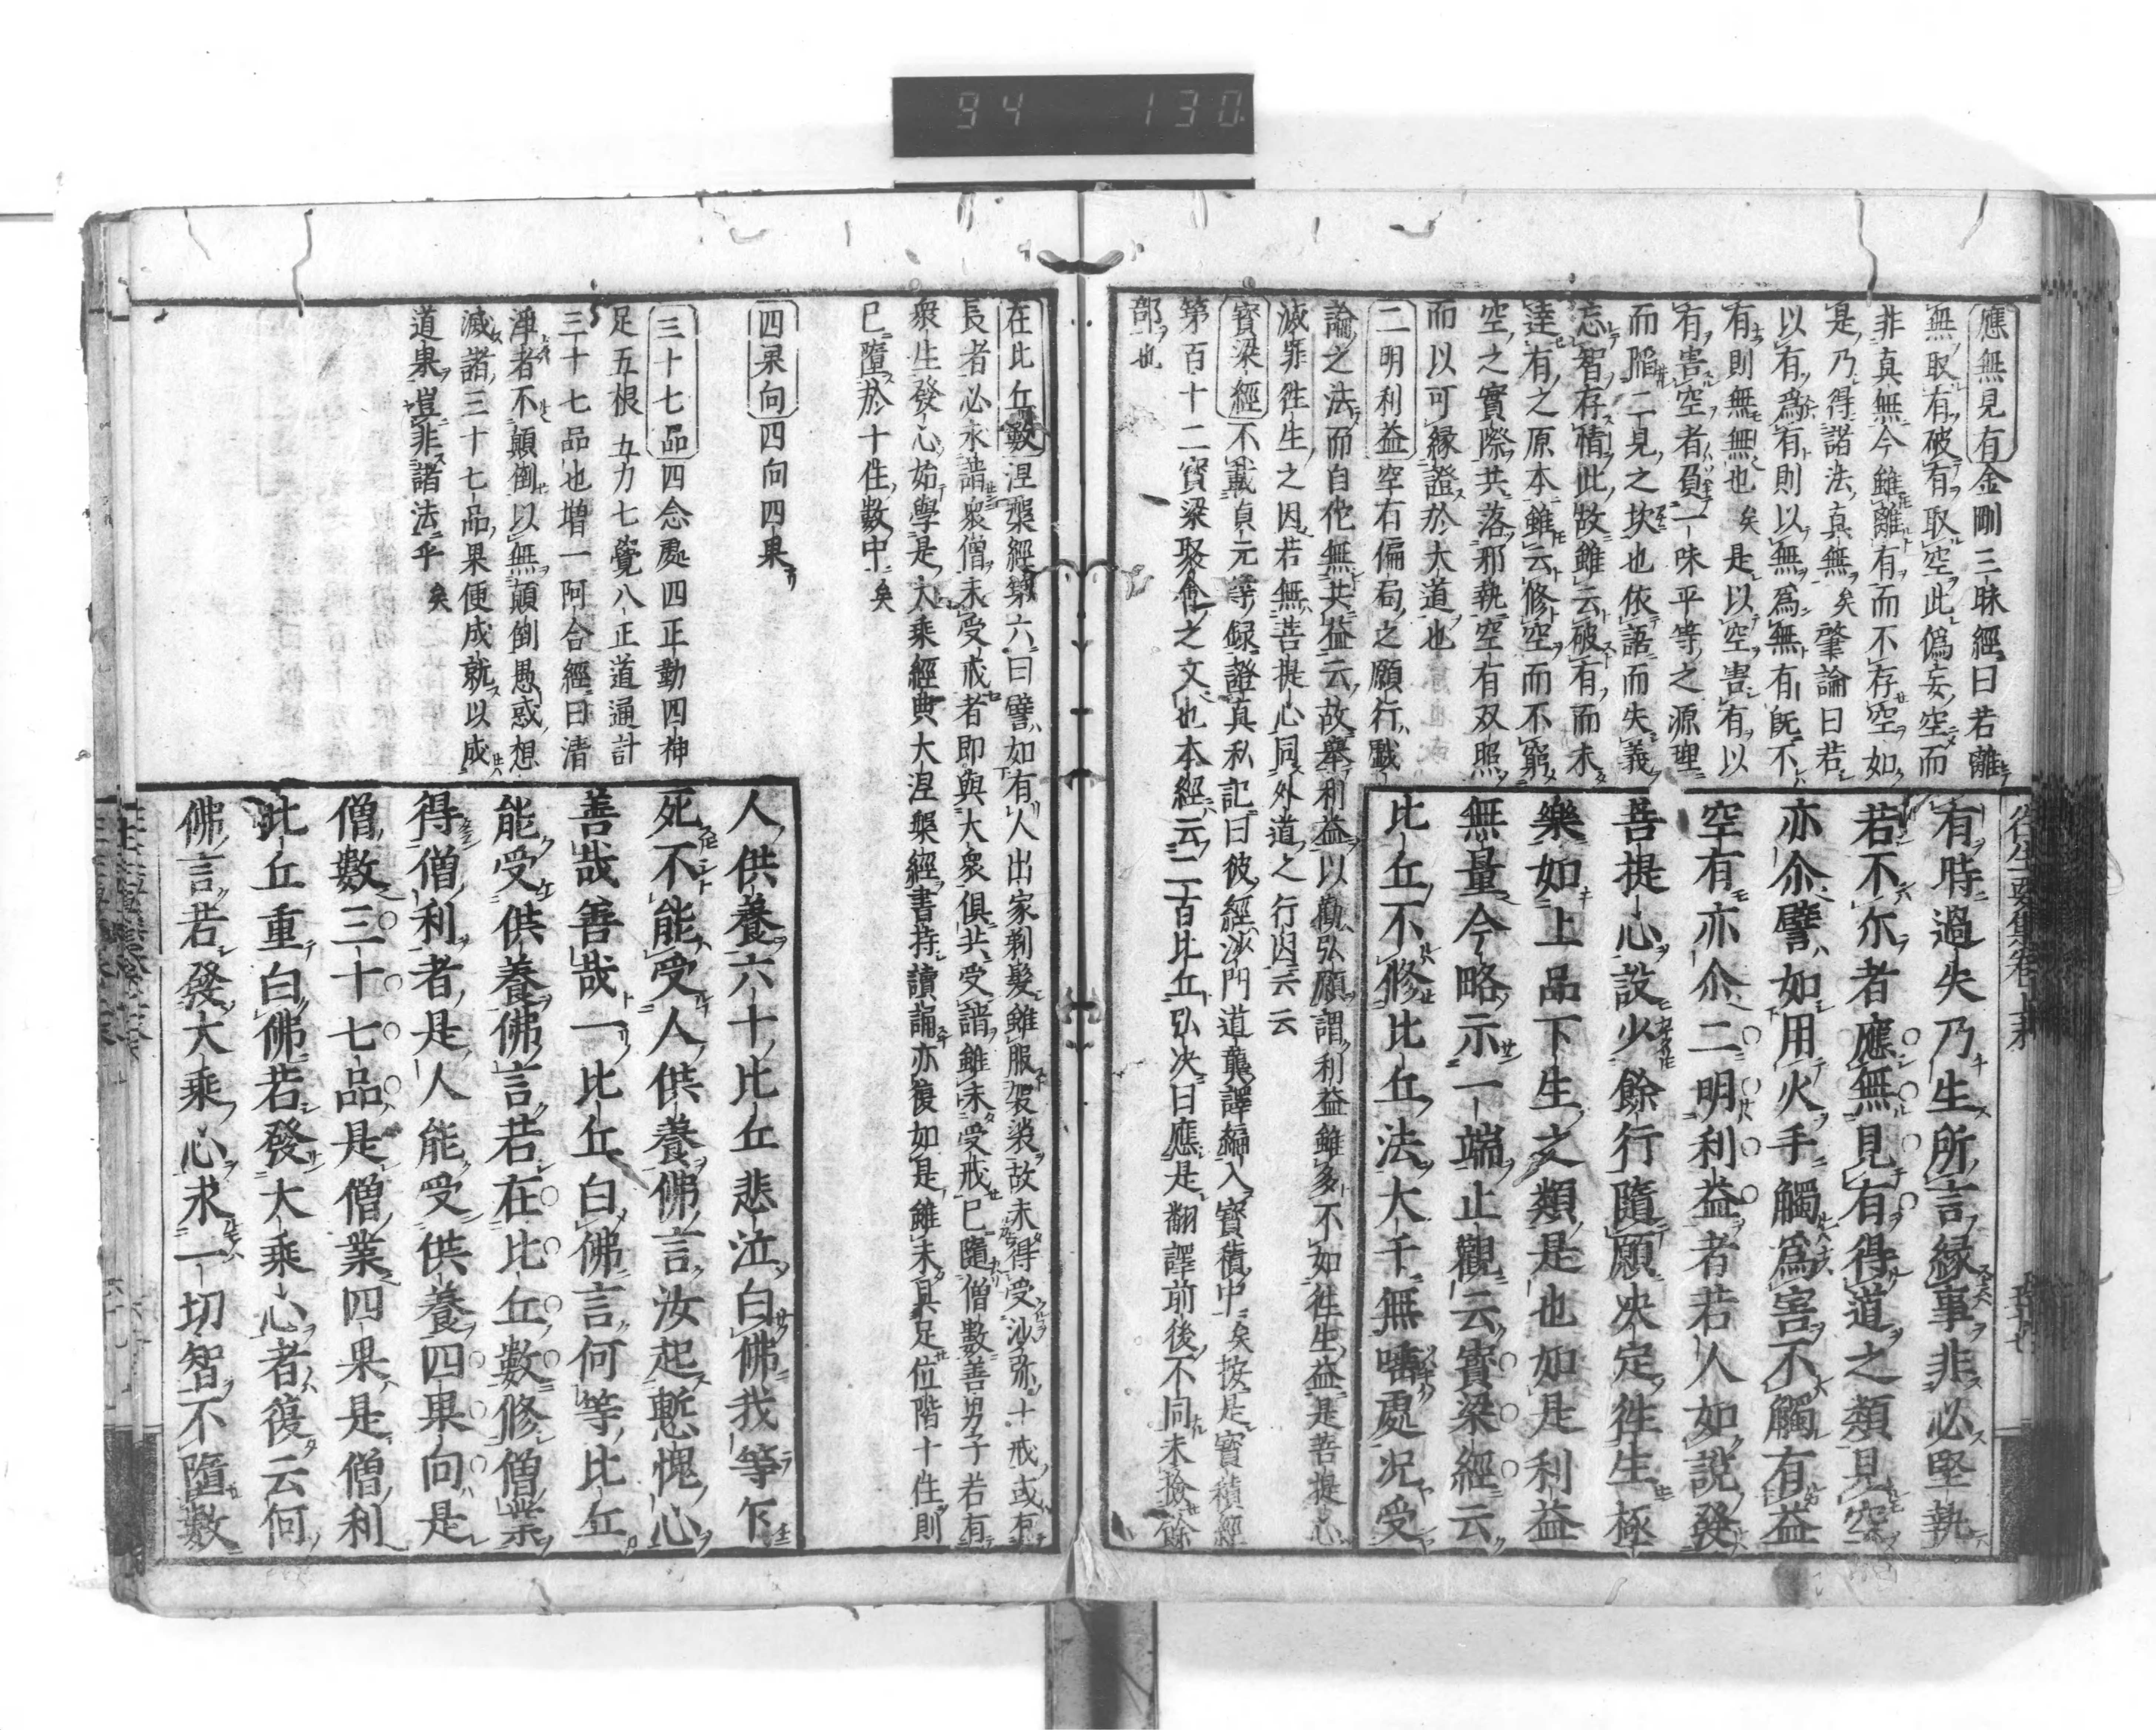 94 130
應無見有金剛三昧經曰若離
無取有破有取空此僞妄空而
非真無今雖離有而不存空如
是乃得諸法真無矣肇論曰若
以有爲有則以無爲無有既不
有則無無也矣是以空害有以
有害空者負一味平等之源理
而陷二見之坎也依語而失義
忘智存情此故雖云破有而未
達有之原本雖云修空而不窮
空之實際共落邪執空有双照
而以可緣證於大道也
二明利益空有偏局之願行戲
論之法而自他無共益云故舉利益以勸弘願謂利益雖多不如往生益是菩提心
滅罪徃生之因若無菩提心同外道之行因云云
寳梁經不載貞元等録證真私記曰彼經沙門道龔譯編入寳積中矣按是寳積經
第百十二寳梁聚會之文也本經云二百比丘弘决曰應是翻譯前後不同未撿餘
部也
有時過失乃生所言緣事非必堅執
若不尓者應無見有得道之類見空
亦尒譬如用火手觸爲害不觸有益
空有亦尒二明利益者若人如說發
菩提心設少餘行隨願决定徃生極
樂如上品下生之類是也如是利益
無量今略示一端止觀云寳梁經云
比丘不修比丘法大千無唾處况受
在比丘數涅槃經第六曰譬如有人出家剃髮雖服袈裟故未得受沙弥十戒或有
長者必永請衆僧未受戒者即與大衆俱共受請雖未受戒已隨僧數善男子若有
衆生發心始學是大乘經典大涅槃經書持讀誦亦復如是雖未具足位階十住則
已墮於十住數中矣
四果向四向四果
三十七品四念處四正勤四神
足五根五力七覺八正道通計
三十七品也増一阿含經曰清
淨者不顛倒以無顛倒愚惑想
滅諸三十七品果便成就以成
道果豈非諸法乎矣
人供養六十比丘悲泣白佛我等乍
死不能受人供養佛言汝起慙愧心
善哉善哉一比丘白佛言何等比丘
能受供養佛言若在比丘數修僧業
得僧利者是人能受供養四果向是
僧數三十七品是僧業四果是僧利
比丘重白佛若發大乘心者復云何
佛言若發大乘心求一切智不墮數